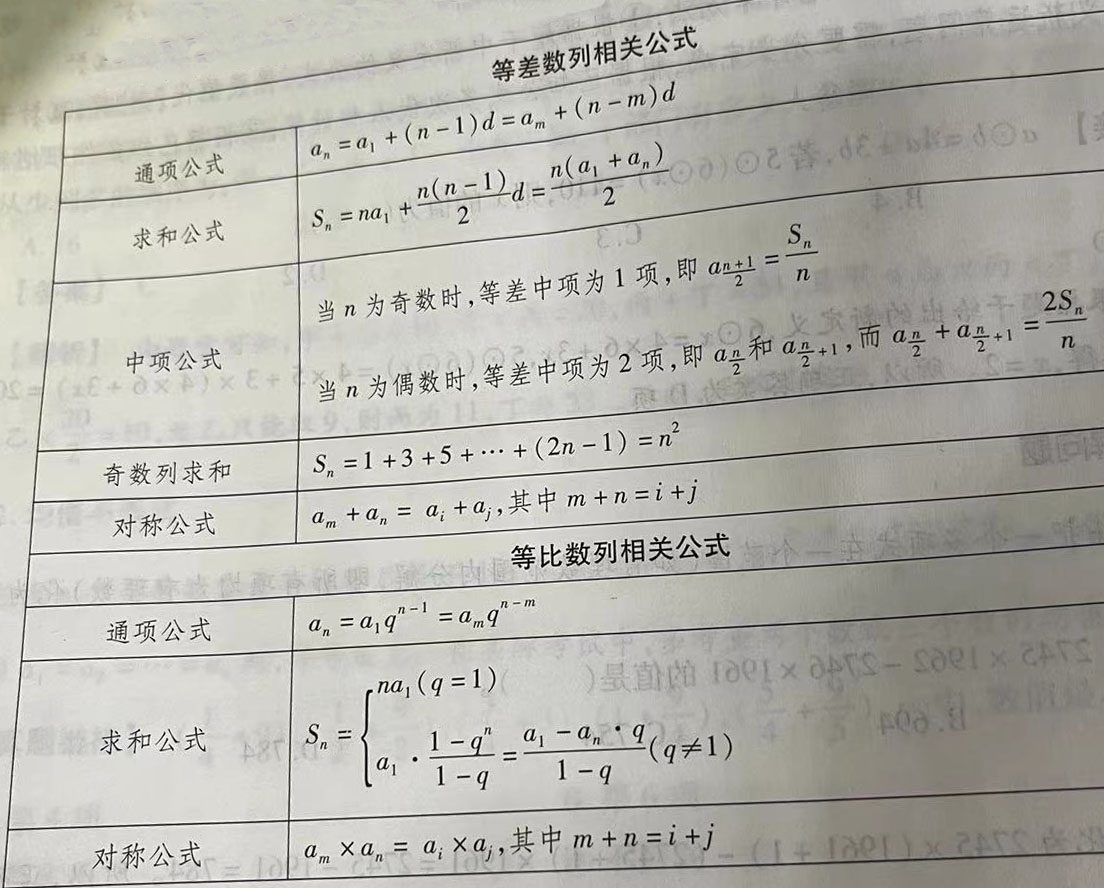 等差数列相关公式
通项公式 aₙ = a₁ + (n-1)d = aₘ + (n-m)d
求和公式 Sₙ = na₁ + \frac{n(n-1)}{2}d = \frac{n(a₁+aₙ)}{2}
当 n 为奇数时,等差中项为 1 项,即 a_{\frac{n+1}{2}} = \frac{Sₙ}{n}
中项公式
当 n 为偶数时,等差中项为 2 项,即 a_{\frac{n}{2}} 和 a_{\frac{n}{2}+1},而 a_{\frac{n}{2}} + a_{\frac{n}{2}+1} = \frac{2Sₙ}{n}
奇数列求和 Sₙ = 1+3+5+⋯+(2n-1) = n²
对称公式 aₘ + aₙ = aᵢ + aⱼ,其中 m+n=i+j
等比数列相关公式
通项公式 aₙ = a₁q^{n-1} = aₘq^{n-m}
na₁(q=1)
求和公式 Sₙ = {
a₁ · \frac{1-qⁿ}{1-q} = \frac{a₁-aₙ·q}{1-q}(q≠1)
对称公式 aₘ × aₙ = aᵢ × aⱼ,其中 m+n=i+j